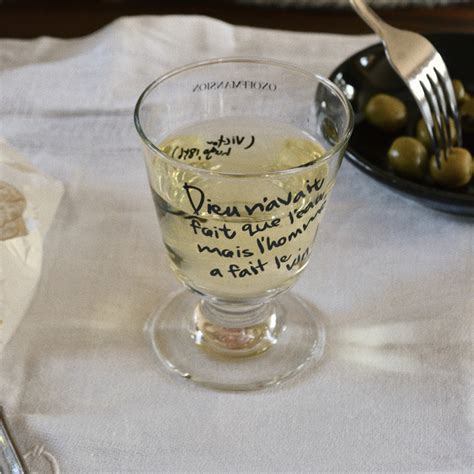 ONOFFMANSION
(Victor
Hugo
Dieu n'avait
fait que l'eau
mais l'homme
a fait le vin